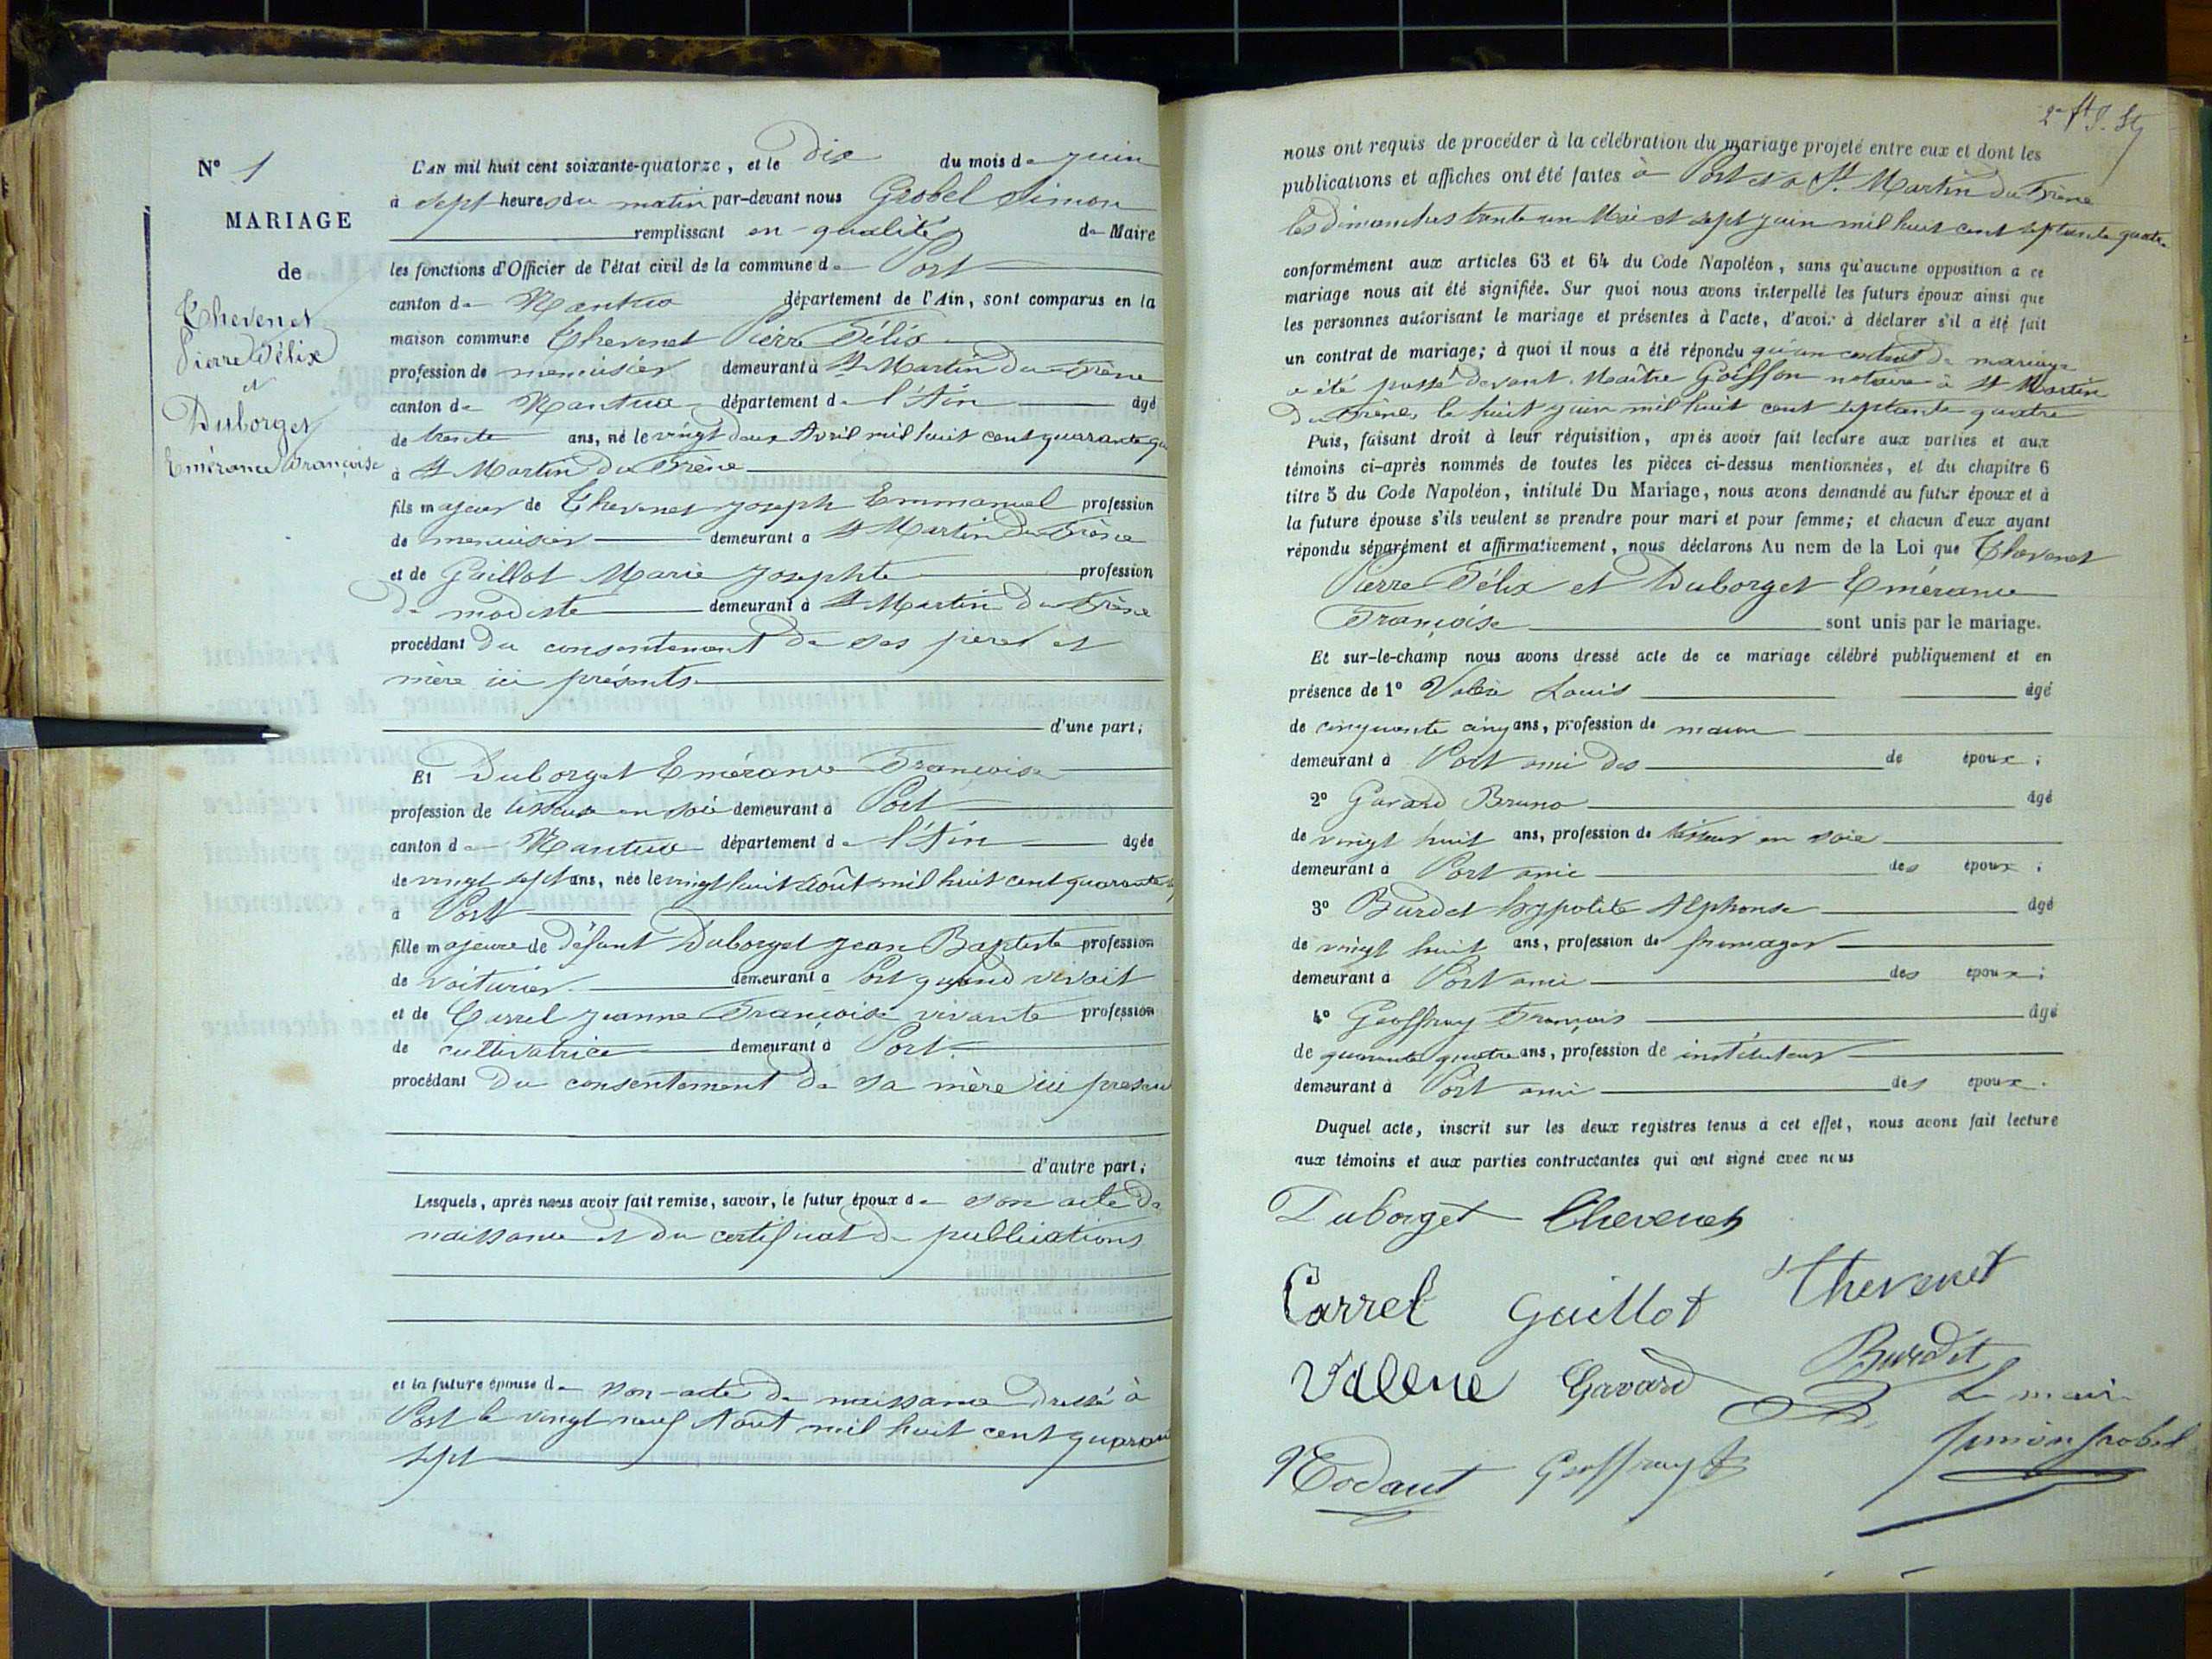 N° 1
MARIAGE
de
Thevenet
Pierre Félix
et
Duborget
Emérance Françoise
L'AN mil huit cent soixante-quatorze, et le dix du mois de juin
à sept heures du matin par-devant nous Grobel Simon
remplissant en qualité de Maire
les fonctions d'Officier de l'état civil de la commune de Port
canton de Nantua département de l'Ain, sont comparus en la
maison commune Thevenet Pierre Félix
profession de menuisier demeurant à St Martin du Frène
canton de Nantua département de l'Ain âgé
de trente ans, né le vingt deux Avril mil huit cent quarante
à St Martin du Frène
fils majeur de Thevenet Joseph Emmanuel profession
de menuisier demeurant à St Martin du Frène
et de Guillot Marie Josephte profession
de modiste demeurant à St Martin du Frène
procédant du consentement de ses père et
mère ici présents
d'une part;
Et Duborget Emérance Françoise
profession de tisseuse en soie demeurant à Port
canton de Nantua département de l'Ain âgée
de vingt sept ans, née le vingt huit Août mil huit cent quarante
à Port
fille majeure de défunt Duborget Jean Baptiste profession
de voiturier demeurant à Port quand vivait
et de Carrel Jeanne Françoise vivante profession
de cultivatrice demeurant à Port
procédant du consentement de sa mère ici
d'autre part;
Lesquels, après nous avoir fait remise, savoir, le futur époux de son acte de
naissance et du certificat de publications
et la future épouse de son acte de naissance dressé à
Port le vingt neuf Août mil huit cent
sept
nous ont requis de procéder à la célébration du mariage projeté entre eux et dont les
publications et affiches ont été faites à Port et à St. Martin du Frène
les dimanches trente un Mai et sept juin mil huit cent septante quatre
conformément aux articles 63 et 64 du Code Napoléon, sans qu'aucune opposition a ce
mariage nous ait été signifiée. Sur quoi nous avons interpellé les futurs époux ainsi que
les personnes autorisant le mariage et présentes à l'acte, d'avoir à déclarer s'il a été fait
un contrat de mariage; à quoi il nous a été répondu qu'un contrat de mariage
a été passé devant Maître Goiffon notaire à St Martin
du Frène, le huit juin mil huit cent septante quatre
Puis, faisant droit à leur réquisition, après avoir fait lecture aux parties et aux
témoins ci-après nommés de toutes les pièces ci-dessus mentionnées, et du chapitre 6
titre 5 du Code Napoléon, intitulé Du Mariage, nous avons demandé au futur époux et à
la future épouse s'ils veulent se prendre pour mari et pour femme; et chacun d'eux ayant
répondu séparément et affirmativement, nous déclarons Au nom de la Loi que Thevenet
Pierre Félix et Duborget Emérance
Françoise sont unis par le mariage.
Et sur-le-champ nous avons dressé acte de ce mariage célébré publiquement et en
présence de 1° Louis âgé
de cinquante cinq ans, profession de
demeurant à Port ami des de époux;
2° Gavard Bruno âgé
de vingt huit ans, profession de tisseur en soie
demeurant à Port ami des époux;
3° Burdet hypolite Alphonse âgé
de vingt huit ans, profession de fromager
demeurant à Port ami des époux;
4° Geoffray François âgé
de quarante quatre ans, profession de instituteur
demeurant à Port ami des époux.
Duquel acte, inscrit sur les deux registres tenus à cet effet, nous avons fait lecture
aux témoins et aux parties contractantes qui ont signé avec nous
Duborget Thevenet
Carrel Guillot Thevenet
Gavard Burdet
Le maire
Geoffray Simon Grobel